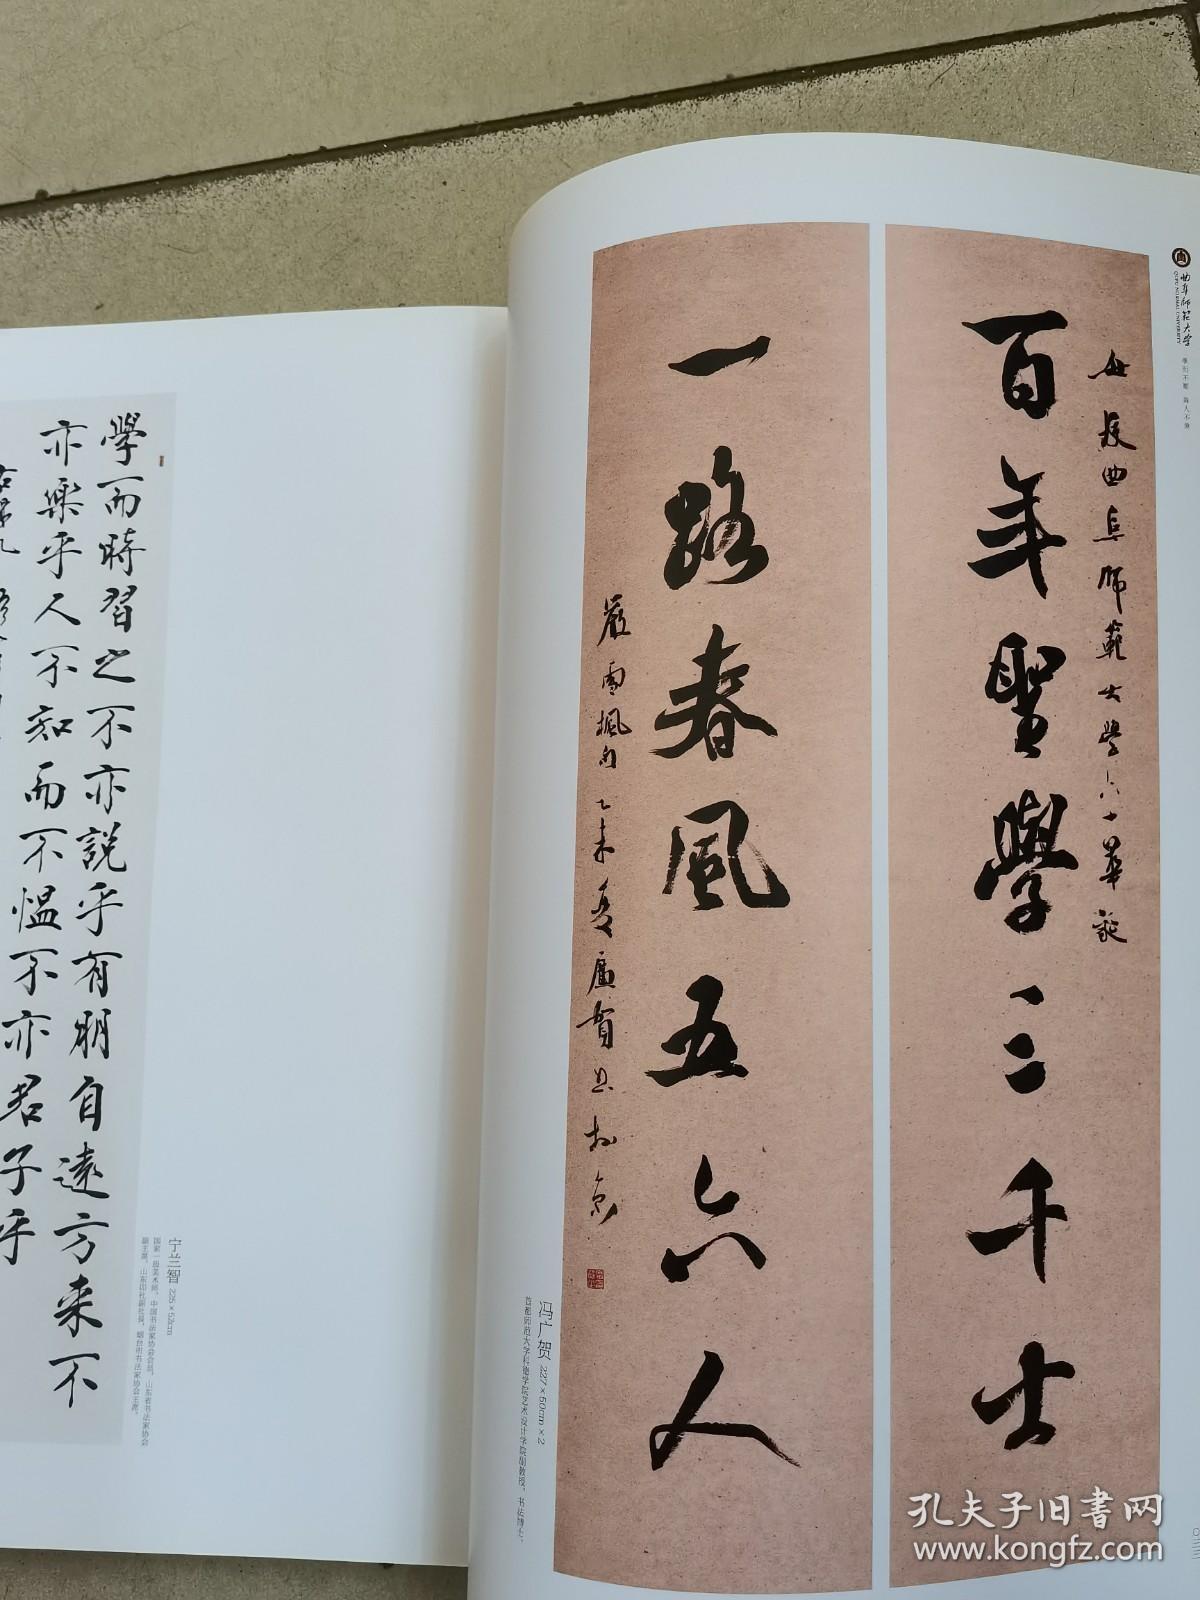 學而時習之不亦説乎有朋自遠方来不
亦樂乎人不知而不愠不亦君子乎
宁兰智 226×53cm
国家一级美术师，中国书法家协会会员，山东省书法家协会
副主席，山东印社副社长，烟台市书法家协会主席。
曲阜师范大学
QUFU NORMAL UNIVERSITY
學而不厭 誨人不倦
母校曲阜師範大學六十華誕
百年聖學三千士
一路春風五六人
嚴雲楓句 乙未夏廣賀书於京
冯广贺 227×50cm×2
首都师范大学科德学院艺术设计学院副教授，书法博士。
孔夫子旧书网
www.kongfz.com